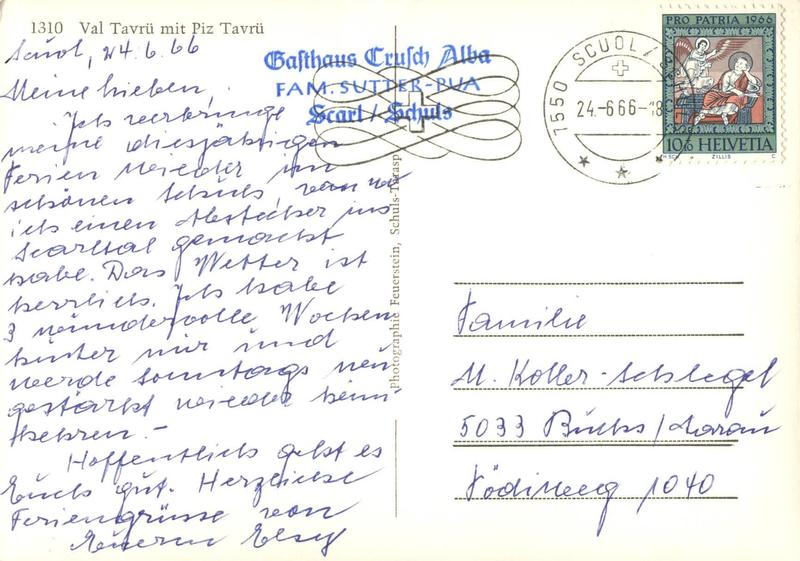 1310 Val Tavrü mit Piz Tavrü
Scuol, 24.6.66
Meine Lieben,
Ich verbringe
meine diesjährigen
Ferien wieder im
schönen Schuls, von wo
ich einen Abstecher ins
Scarltal gemacht
habe. Das Wetter ist
herrlich. Ich habe
3 wundervolle Wochen
hinter mir und
werde sonntags neu
gestärkt wieder heim-
kehren.-
Hoffentlich geht es
Euch gut. Herzliche
Feriengrüsse von
Euerm Elsy
Gasthaus Crusch Alba
FAM. SUTTER-PUA
Scarl / Schuls
Photographie Feuerstein, Schuls-Tarasp
7550 SCUOL /
24.-6.66-18
PRO PATRIA 1966
10+5 HELVETIA
ZILLIS
Familie
M. Koller-Schlegel
5033 Buchs/Aarau
Tödiweg 1040